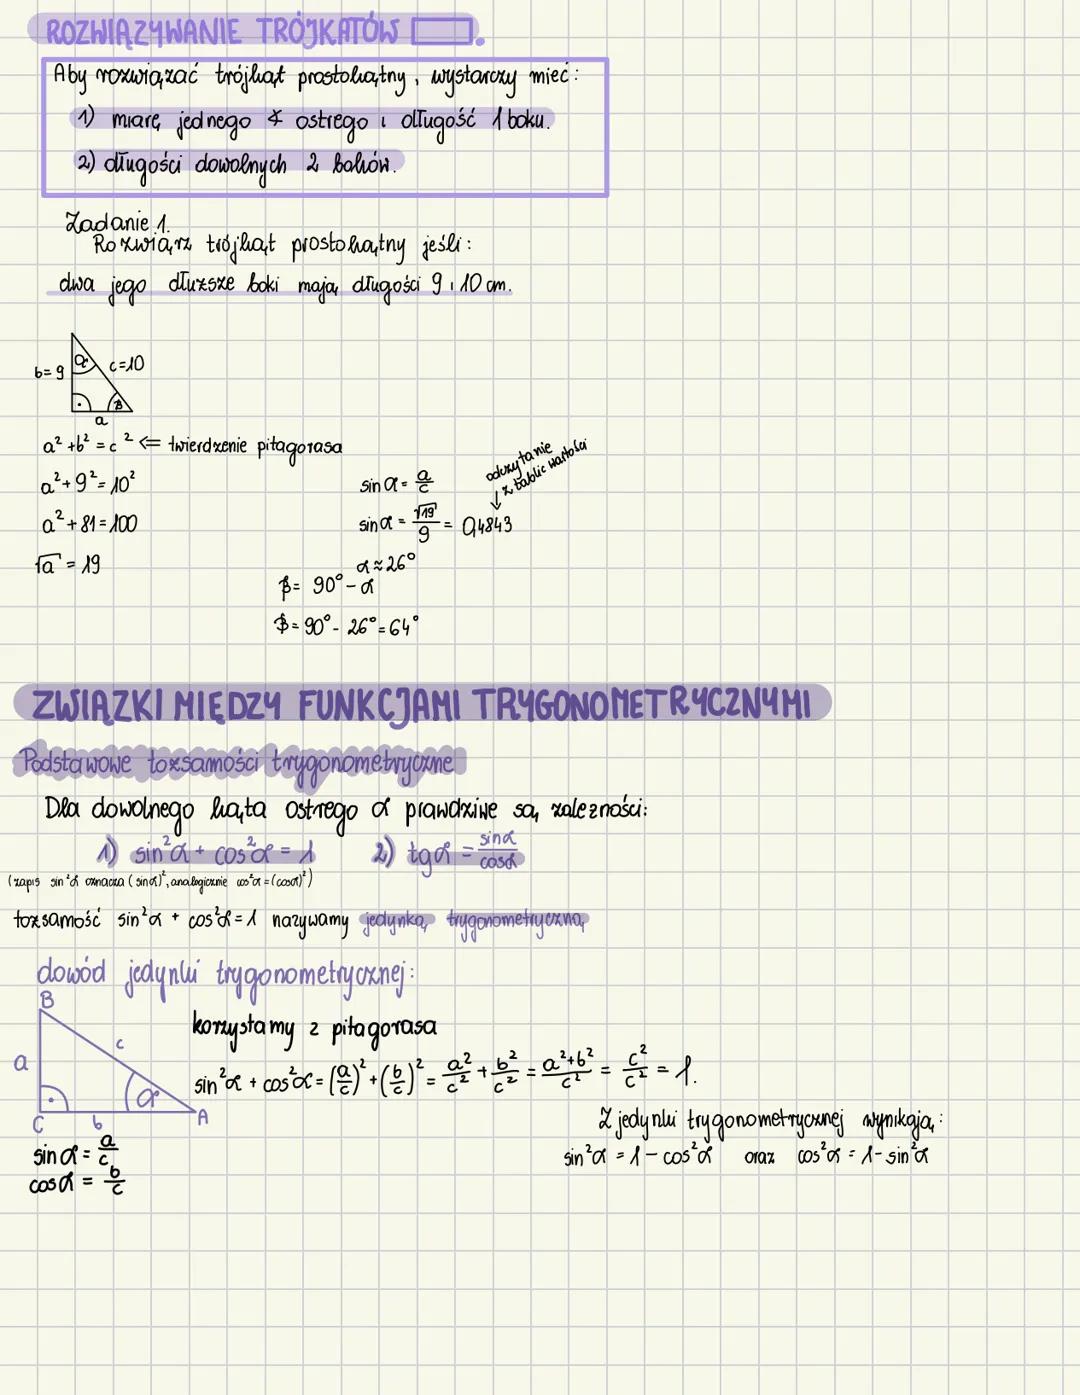 ROZWIĄZYWANIE TRÓJKĄTÓW ▭.
Aby rozwiązać trójkąt prostokątny, wystarczy mieć:
1) miarę jednego ∢ ostrego i długość 1 boku.
2) długości dowolnych 2 boków.
Zadanie 1.
Rozwiąrz trójkąt prostokątny jeśli:
dwa jego dłuższe boki mają długości 9 i 10 cm.
b=9
α
c=10
β
a
a² + b² = c² ⇐ twierdzenie pitagorasa
a² + 9² = 10²
a² + 81 = 100
√a = 19
sin α = a/c
odczytanie
z tablic wartości
sin α = √19/9 = 0,4843
α ≈ 26°
β = 90° - α
β = 90° - 26° = 64°
ZWIĄZKI MIĘDZY FUNKCJAMI TRYGONOMETRYCZNYMI
Podstawowe tożsamości trygonometryczne
Dla dowolnego kąta ostrego α prawdziwe są zależności:
1) sin²α + cos²α = 1 2) tgα = sinα/cosα
(zapis sin²α oznacza (sinα)², analogicznie cos²α = (cosα)²)
tożsamość sin²α + cos²α = 1 nazywamy jedynką trygonometryczną
dowód jedynki trygonometrycznej:
B
korzystamy z pitagorasa
c
a
α
sin²α + cos²α = (a/c)² + (b/c)² = a²/c² + b²/c² = a²+b²/c² = c²/c² = 1.
C b A
Z jedynki trygonometrycznej wynikają:
sin α = a/c
sin²α = 1 - cos²α oraz cos²α = 1 - sin²α
cos α = b/c